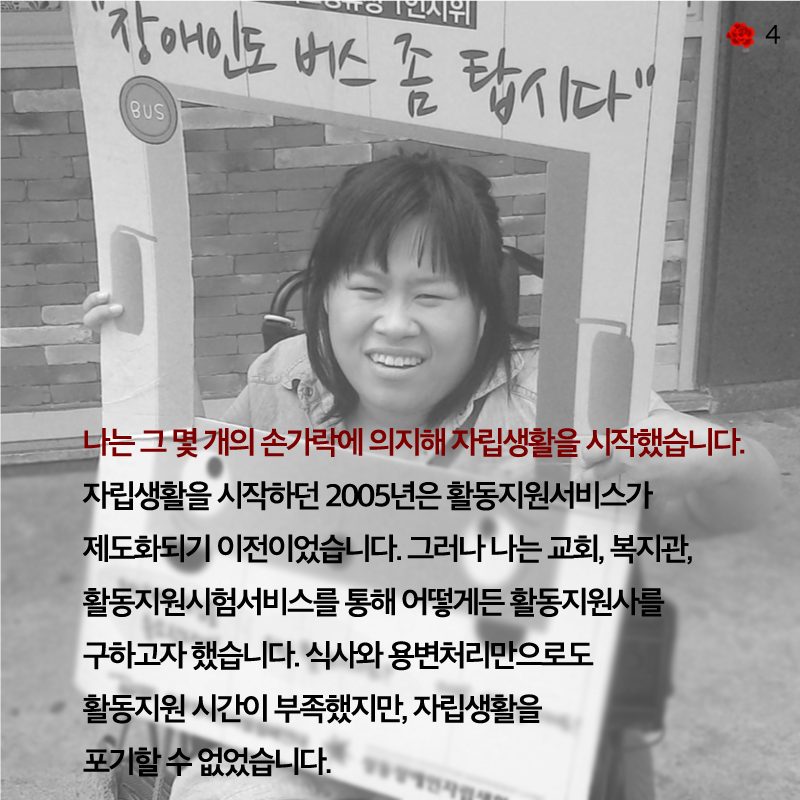 4
"장애인도 버스 좀 탑시다"
BUS
나는 그 몇 개의 손가락에 의지해 자립생활을 시작했습니다.
자립생활을 시작하던 2005년은 활동지원서비스가
제도화되기 이전이었습니다. 그러나 나는 교회, 복지관,
활동지원시험서비스를 통해 어떻게든 활동지원사를
구하고자 했습니다. 식사와 용변처리만으로도
활동지원 시간이 부족했지만, 자립생활을
포기할 수 없었습니다.